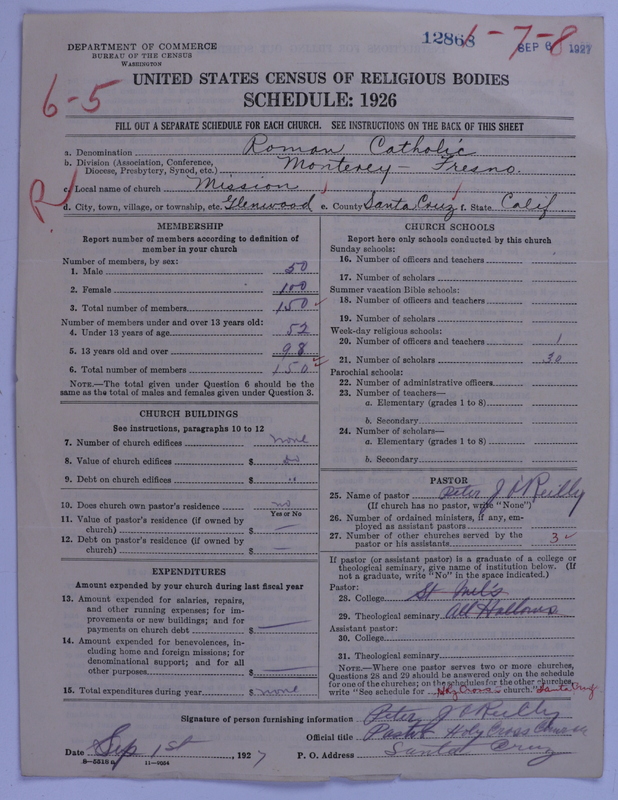 12868 1-7-8
SEP 6 1927
DEPARTMENT OF COMMERCE
BUREAU OF THE CENSUS
WASHINGTON
6-5
UNITED STATES CENSUS OF RELIGIOUS BODIES
SCHEDULE: 1926
FILL OUT A SEPARATE SCHEDULE FOR EACH CHURCH. SEE INSTRUCTIONS ON THE BACK OF THIS SHEET
a. Denomination Roman Catholic
b. Division (Association, Conference, Diocese, Presbytery, Synod, etc.) Monterey-Fresno.
c. Local name of church Mission
R
d. City, town, village, or township, etc. Glenwood e. County Santa Cruz f. State Calif
MEMBERSHIP
Report number of members according to definition of
member in your church
Number of members, by sex:
1. Male 50
2. Female 100
3. Total number of members 150
Number of members under and over 13 years old:
4. Under 13 years of age 52
5. 13 years old and over 98
6. Total number of members 150
NOTE.—The total given under Question 6 should be
same as the total of males and females given under Question 3.
CHURCH BUILDINGS
See instructions, paragraphs 10 to 12
7. Number of church edifices none
8. Value of church edifices $ do
9. Debt on church edifices $ "
10. Does church own pastor's residence no
Yes or No
11. Value of pastor's residence (if owned by
church) $ —
12. Debt on pastor's residence (if owned by
church) $ —
EXPENDITURES
Amount expended by your church during last fiscal year
13. Amount expended for salaries, repairs,
and other running expenses; for im-
provements or new buildings; and for
payments on church debt $ —
14. Amount expended for benevolences, in-
cluding home and foreign missions; for
denominational support; and for all
other purposes $ —
15. Total expenditures during year $ none
CHURCH SCHOOLS
Report here only schools conducted by this church
Sunday schools:
16. Number of officers and teachers
17. Number of scholars
Summer vacation Bible schools:
18. Number of officers and teachers
19. Number of scholars
Week-day religious schools:
20. Number of officers and teachers 1
21. Number of scholars 30
Parochial schools:
22. Number of administrative officers
23. Number of teachers—
a. Elementary (grades 1 to 8)
b. Secondary
24. Number of scholars—
a. Elementary (grades 1 to 8)
b. Secondary
PASTOR
25. Name of pastor Peter J O'Reilly
(If church has no pastor, write "None")
26. Number of ordained ministers, if any, em-
ployed as assistant pastors
27. Number of other churches served by the
pastor or his assistants 3
If pastor (or assistant pastor) is a graduate of a college or
theological seminary, give name of institution below. (If
not a graduate, write "No" in the space indicated.)
Pastor:
28. College St Mel's
29. Theological seminary All Hallows
Assistant pastor:
30. College
31. Theological seminary
NOTE.—Where one pastor serves two or more churches,
Questions 28 and 29 should be answered only on the schedule
for one of the churches; on the schedules for the other churches,
write "See schedule for Holy Cross church." Santa Cruz
Signature of person furnishing information Peter J O'Reilly
Official title Pastor Holy Cross Church
Date Sep 1st, 1927 P. O. Address Santa Cruz
8-5518a 11-9024